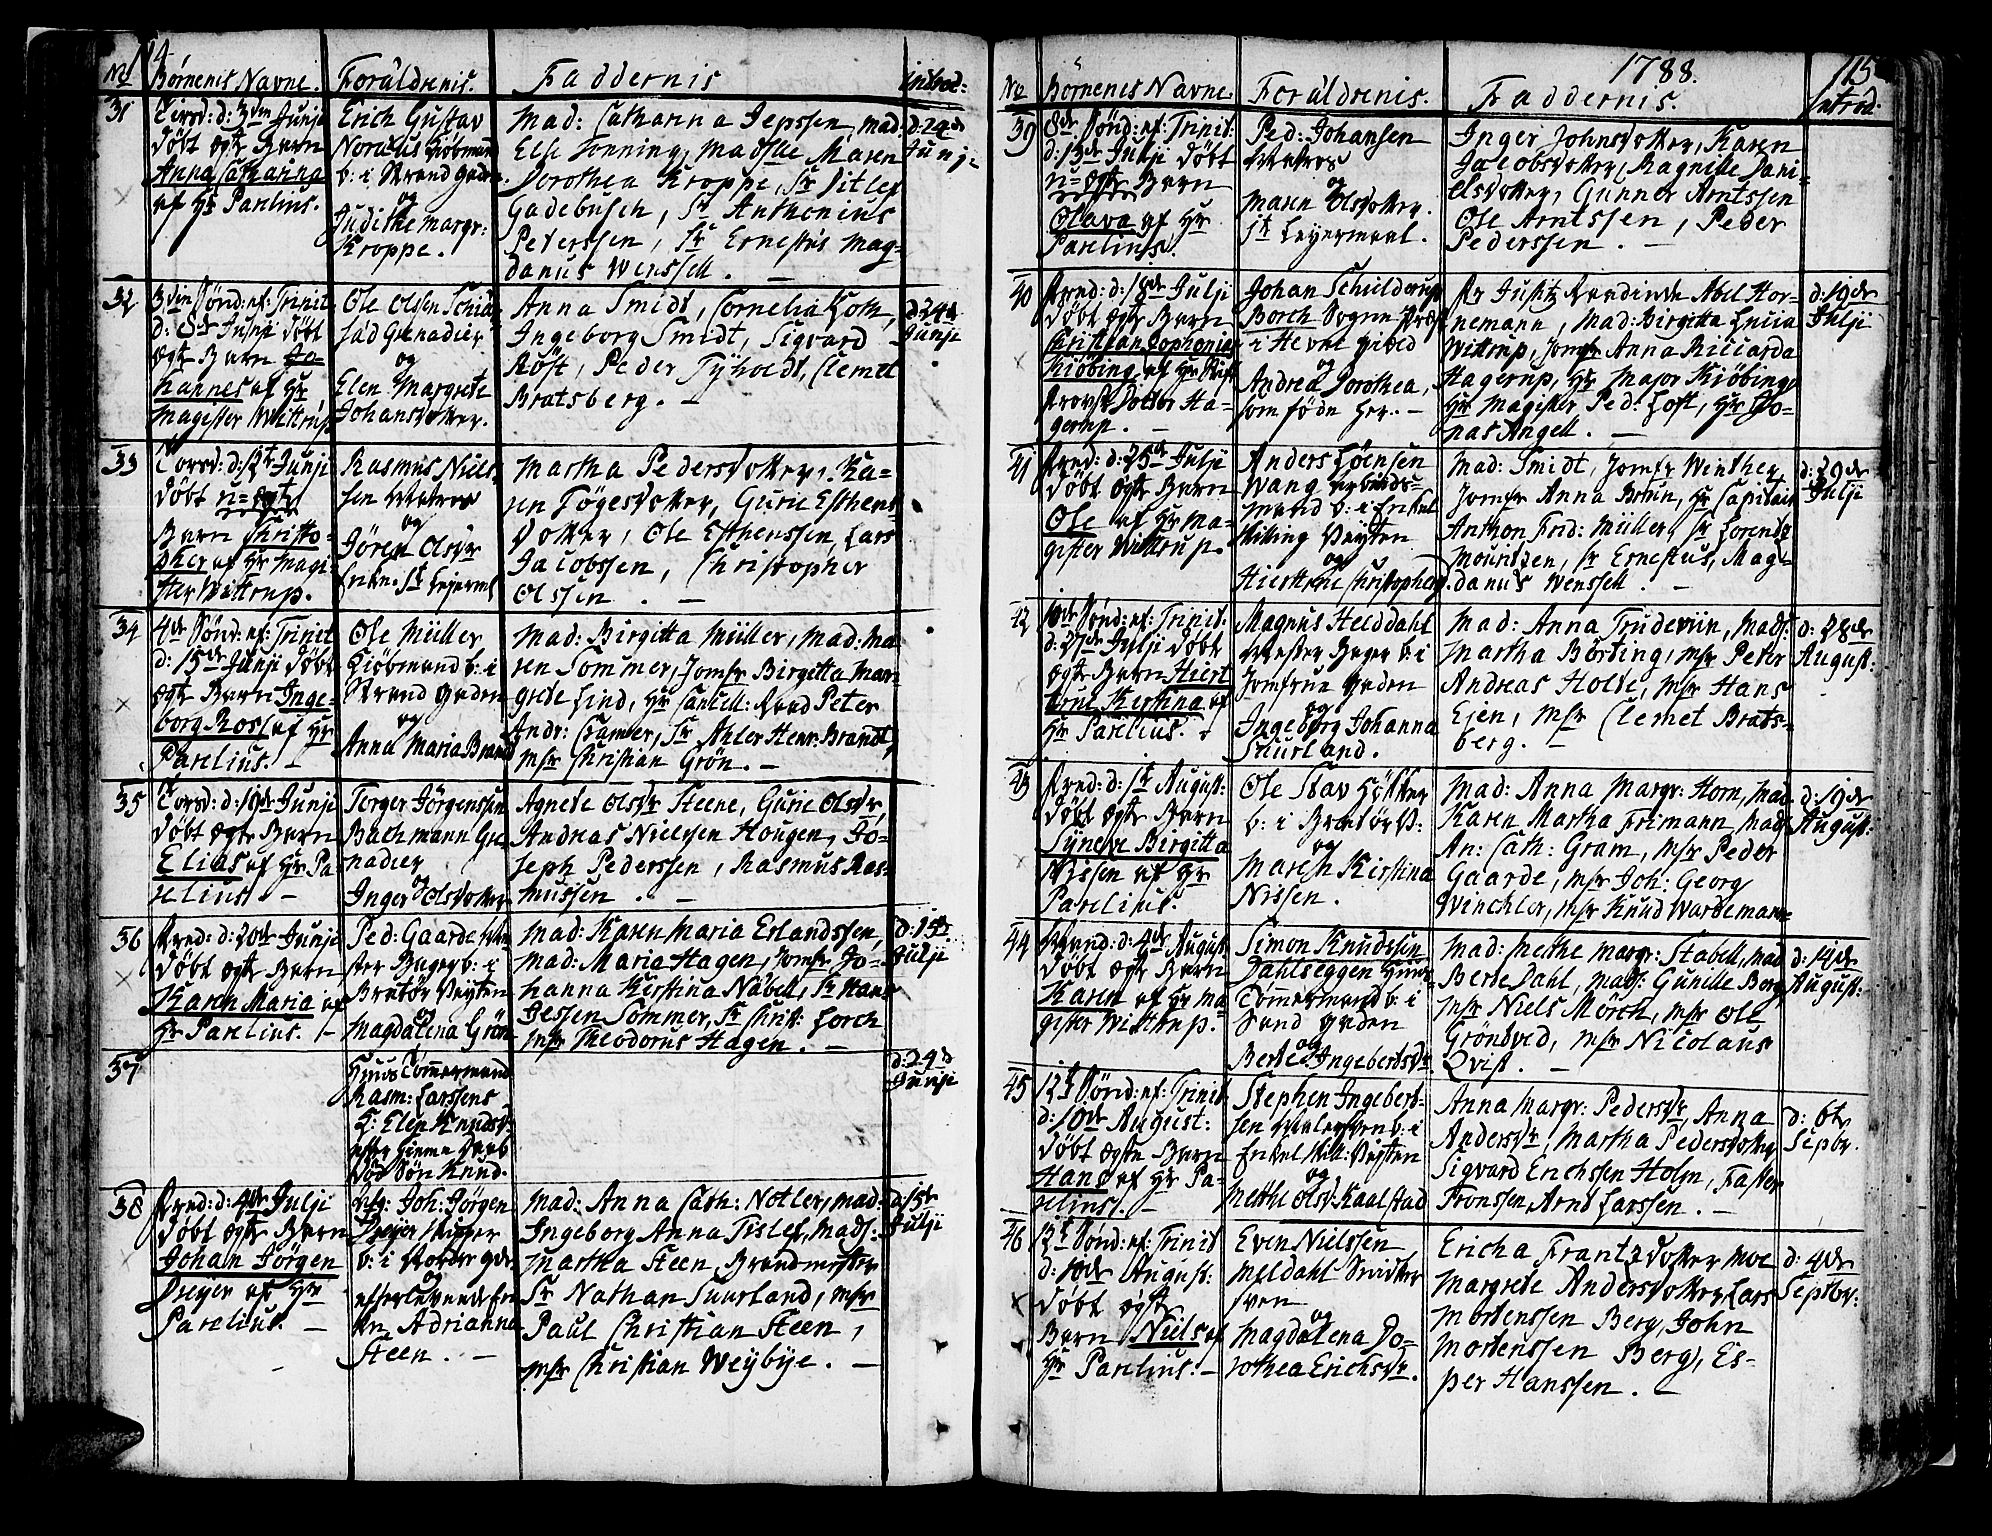 114
No Børnenis Navne. Forældrenis. Faddernis introd:
31 Tirsd: d: 3die Junji
døbt ægte Barn
Anna Catharina
af Hr Parelius.
Erich Gustav
Nordahl Kiøbmand
b: i Strand gaden
og
Judithe Margr:
Kroppe.
Mad: Catharina Jepssen, Mad:
Else Lonning, Madslle Maren
Dorothea Kroppe, Sr Ditlef
Gadebusch, Sr Anthonius
Peterssen, Sr Ernestus Mag-
danus Wenssell. —
d: 24de
Junji
32 3die Sønd: ef: Trinit
d: 8de Junji døbt
ægte Barn Jo-
hannes af Hr
Magister Wittrup
Ole Olssen
Grenadier
og
Elen Margrete
Johansdotter.
Anna Smidt, Cornelia Koth,
Ingeborg Smidt, Sigvard
Røst, Peder Tyholdt, Clemet
Bratsberg. —
d: 24de
Junji
33 Torsd: d: 12te Junji
døbt u-ægte
Barn Christo-
pher af Hr Magi-
ster Wittrup.
Rasmus Niels-
sen Matros
og
Jøren Olsdr
Enke. 1ste Leyermaal
Martha Pedersdotter, Ka-
ren Tøgesdotter, Gurie Esthens-
dotter, Ole Esthenssen, Lars
Jacobssen, Christopher
Olssen. —
34 4de Sønd: ef: Trinit
d: 15de Junji døbt
ægte Barn Inge-
borg Ross af Hr
Parelius. —
Ole Müller
Kiøbmand b: i
Strand gaden
og
Anna Maria Brandt
Mad: Birgitta Müller, Mad: Ma-
ren Sommer, Jomfr Birgitta Mar-
grete Lind, Hr Cancell: Raad Peter
Andr: Cramer, Sr Ahler Henr: Brandt,
Mr Christian Grön. —
35 Torsd: d: 19de Junji
døbt ægte Barn
Elias af Hr Pa-
relius. —
Torger Jörgenssen
Bachmann Gre-
nadier
og
Inger Olsdotter
Agnete Olsdr Steene, Gurie Olsdr,
Andreas Nielssen Hougen, Jo-
seph Pederssen, Rasmus Ras-
mussen. —
36 Fred: d: 20de Junji
døbt ægte Barn
Karen Maria af
Hr Parelius. —
Ped: Gaarde Me-
ster Bager b: i
Bratør Veyten
og
Magdalena Grön
Mad: Karen Maria Erlandssen,
Mad: Maria Hagen, Jomfr Jo-
hanna Kirstina Nabell, Sr Hans
Jessen Sommer, Sr Christ: Lorch
Mr Theodorus Hagen. —
d: 15de
Julji
37
Huus Tømmermand
Rasm: Larssens
K: Elen Knudsd:
efter hieme Daab
Død Søn Knud.
d: 24de
Junji
38 Fred: d: 4de Julji
døbt ægte Barn
Johan Jörgen
Dreyer af Hr
Parelius. —
Joh: Jörgen
Dreyer Skipper
b: i
og
efterlevende En-
ke Adrianna
Steen. —
Mad: Anna Cath: Notler, Mad:
Ingeborg Anna Tislef, Mads:
Martha Steen, Brandmester
Sr Nathan Suurland, Mr
Paul Christian Steen,
Mr Christian Weybye. —
d: 15de
Julji
1788. 115
No Børnenes Navne. Forældrenis. Faddernis. Introd:
39 8de Sønd: ef: Trinit:
d: 13de Julji døbt
u-ægte Barn
Olava af Hr
Parelius.
Ped: Johansen
Matros
og
Maren Olsdotter.
1ste Leyermaal.
Inger Johnsdotter, Karen
Jacobsdotter, Magnille Dani-
elsdotter, Gunner Arntssen
Ole Arntssen, Peder
Pederssen. —
40 Fred: d: 18de Julji
døbt ægte Barn
Christian Sophonias
Kiöbing af Hr Stift
Provst Doctor Ha-
gerup. —
Johan Schielderup
Borch Sogne Præst
i Hevne gield
og
Andrea Dorothea,
som føde her. —
Fr Justitz Raadinde Abel Hor-
nemann, Mad: Birgitta Lucia
Wittrup, Jomfr Anna Riccarda
Hagerup, Hr Major Kiöbing,
Hr Magister Ped: Toft, Hr Jo-
nas Angell. —
d: 19de
Julji
41 Fred: d: 25de Julji
døbt ægte Barn
Ole af Hr Ma-
gister Wittrup.
Anders Loensen
Wang arbeids-
mand b: i Enkel
Skilling Veyten
og
Hierttrue Christophersd.
Mad: Smidt, Jomfr Winther,
Jomfr Anna Brun, Hr Capitain
Anthon Frid: Müller, Sr Lorentz
Mountzen, Sr Ernestus Mag-
danus Wenssell. —
d: 29de
Julji
42 10de Sønd: ef: Trinit:
d: 27de Julji døbt
ægte Barn Hiert
true Kirstina af
Hr Parelius.
Magnus Helddahl
Mester Bager b: i
Jomfrue gaden
og
Ingeborg Johanna
Suurland.
Mad: Anna Trudeviin, Mads:
Martha Börting, Mr Peter
Andreas Holte, Mr Hans
Ejen, Mr Clemet Brats-
berg. —
d: 28de
August:
43 Fred: d: 1ste August:
døbt ægte Barn
Syneve Birgitta
Nissen af Hr
Parelius.
Ole Stav Høkker
b: i Bratør V:
og
Maren Kirstina
Nissen.
Mad: Anna Margr: Horn, Mad:
Karen Martha Frimann, Mads:
An: Cath: Gram, Mr Peder
Gaarde, Mr Joh: Georg
Winchler, Mr Knud Wardemann
d: 19de
August:
44 d: 4de August:
døbt ægte Barn
Karen af Hr Ma-
gister Wittrup.
Simon Knudssen
Dahlseggen Huus
Tømmermand b: i
Sand gaden
og
Berte Ingebertsdr
Mad: Mette Margr: Stabell, Mad
Berte Dahl, Mads: Gunille Berg,
Mr Niels Mörch, Mr Ole
Gröndved, Mr Nicolaus
Qvist. —
d: 14de
August:
45 12te Sønd: ef: Trinit
d: 10de August:
døbt ægte Barn
Hans af Hr Pa-
relius. —
Stephen Ingeberts-
sen b: i
Enkel Skill: Veyten
og
Mette Olsd: Kaalstad
Anna Margr: Pedersdr, Anna
Andersdr, Martha Pedersdotter,
Sigvard Erichssen Holm, Faster
Fronssen, Arnt Larssen. —
d: 6te
Septbr.
46 12te Sønd: ef: Trinit
d: 10de August:
døbt ægte
Barn Niels af
Hr Parelius. —
Even Nielssen
Meldahl Snidker
sven
og
Magdalena Do-
rothea Erichsdr.
Ericha Frantzdotter Moe
Margrete Andersdotter, Lars
Mortenssen Berg, John
Mortenssen Berg, Es-
per Hanssen. —
d: 4de
Septbr: